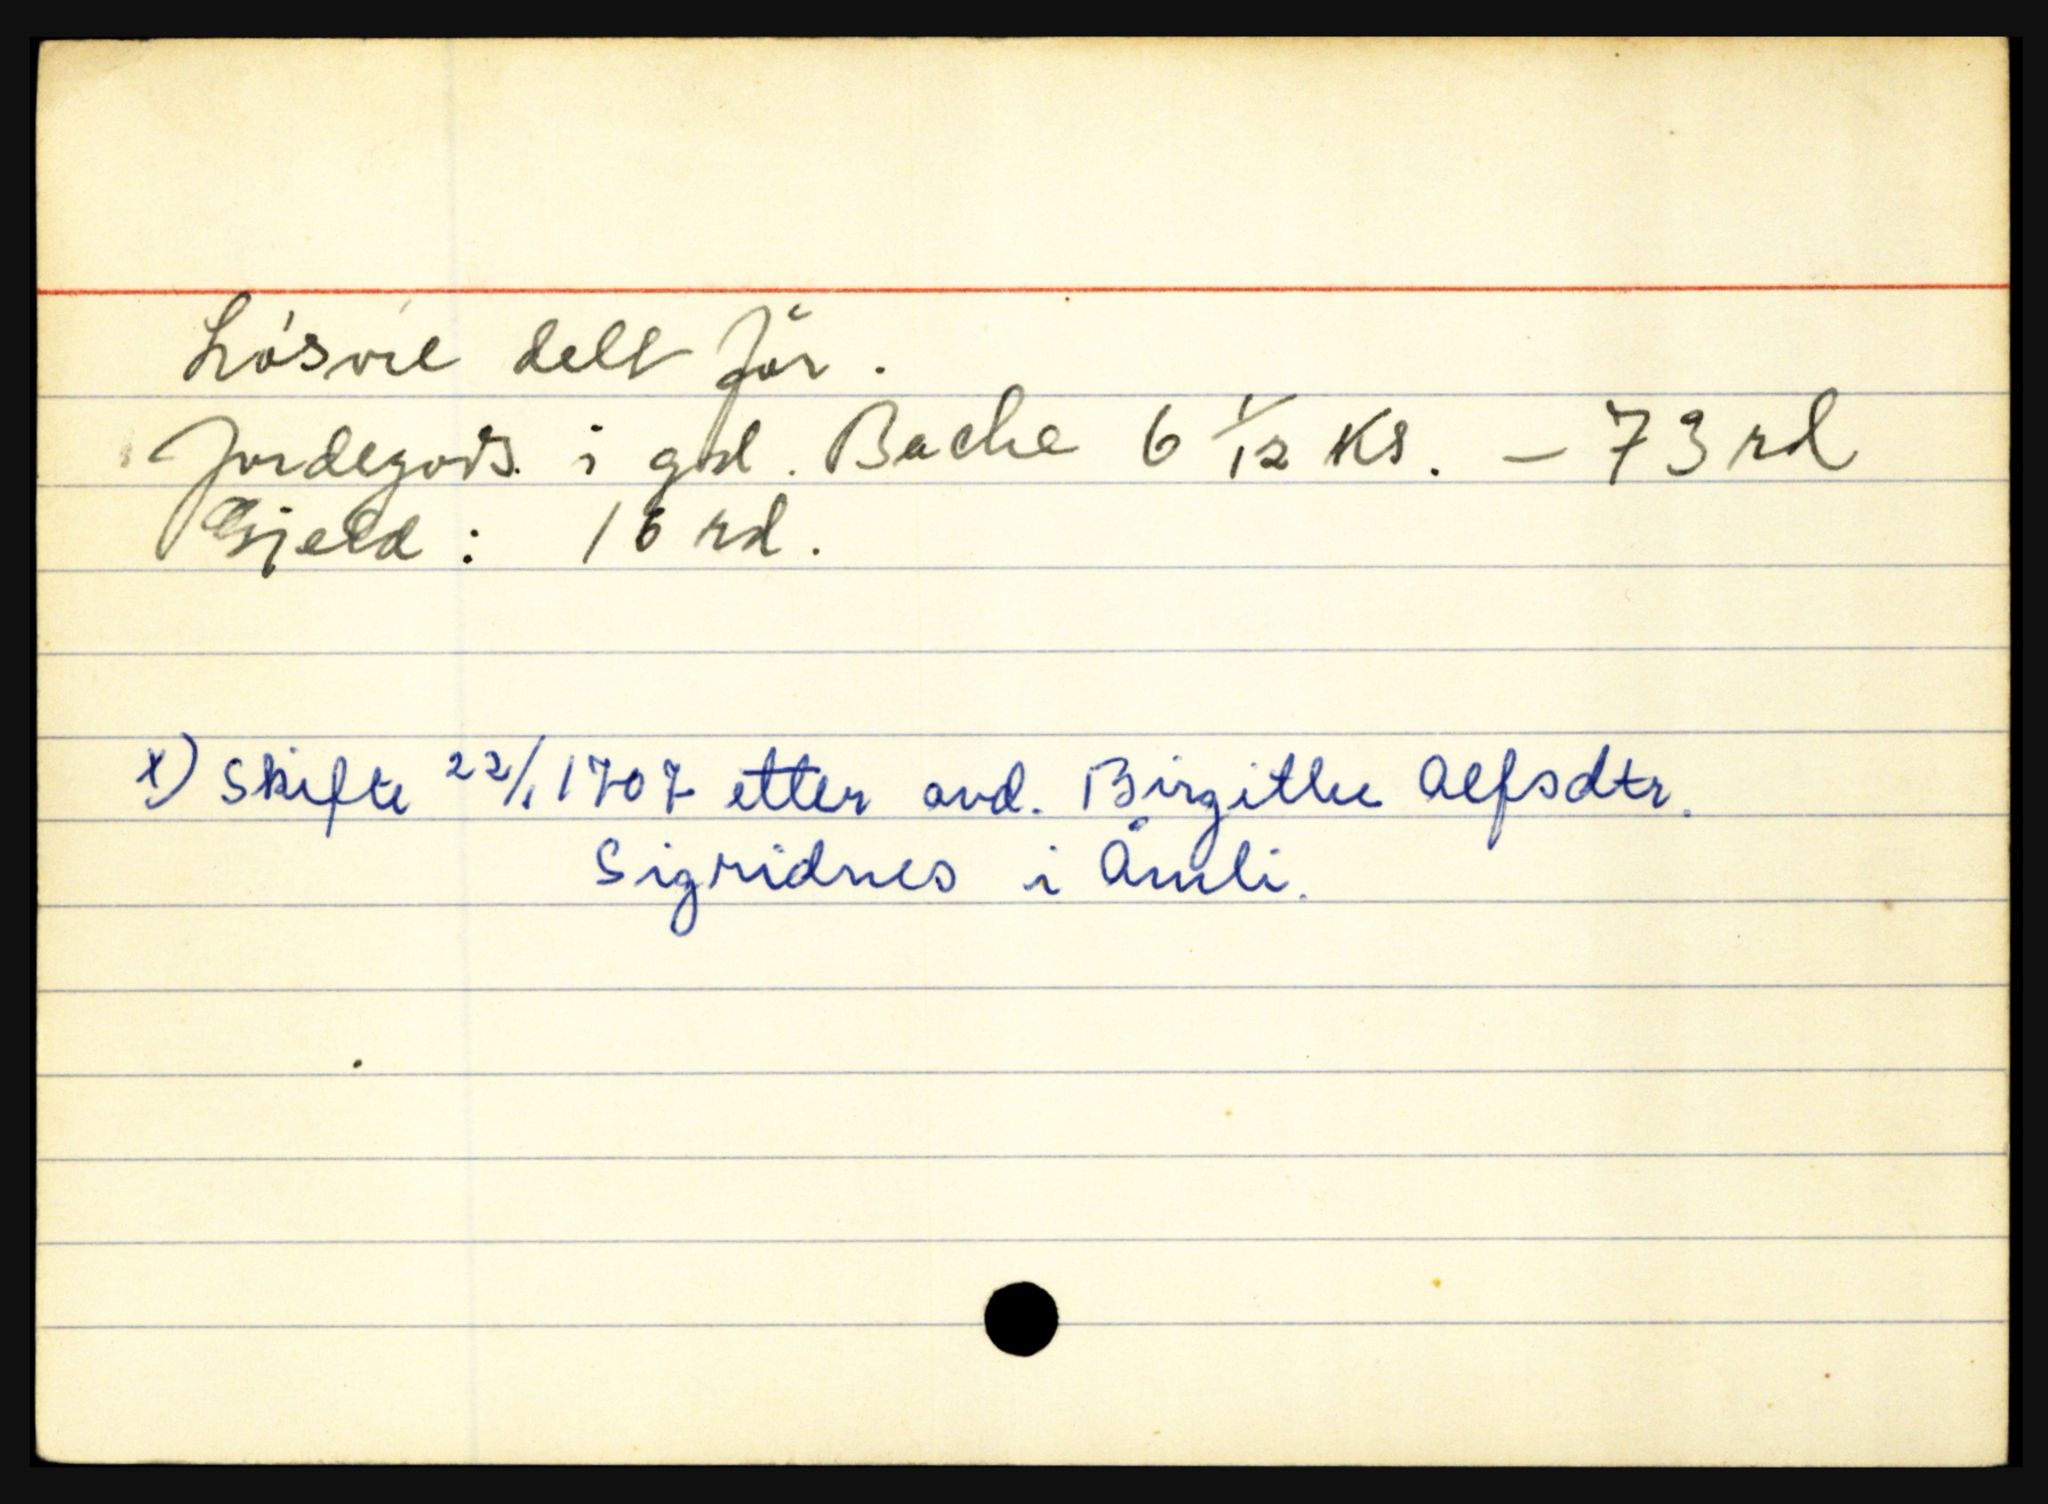 Lösöre delt før.
Jordegods i grd. Bache 6 1/12 Ks. – 73 rd
Gjeld : 16 rd.
x) Skifte 22/1 1707 etter avd. Birgithe Alfsdtr.
Sigridnes i Åmli.